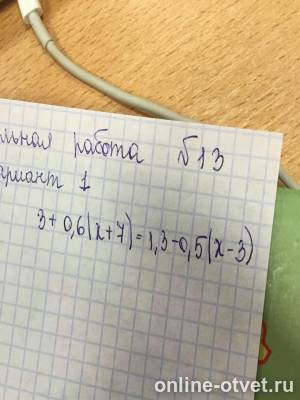 льная работа №13
ариант 1
3+0,6(x+7)=1,3-0,5(x-3)
online-otvet.ru